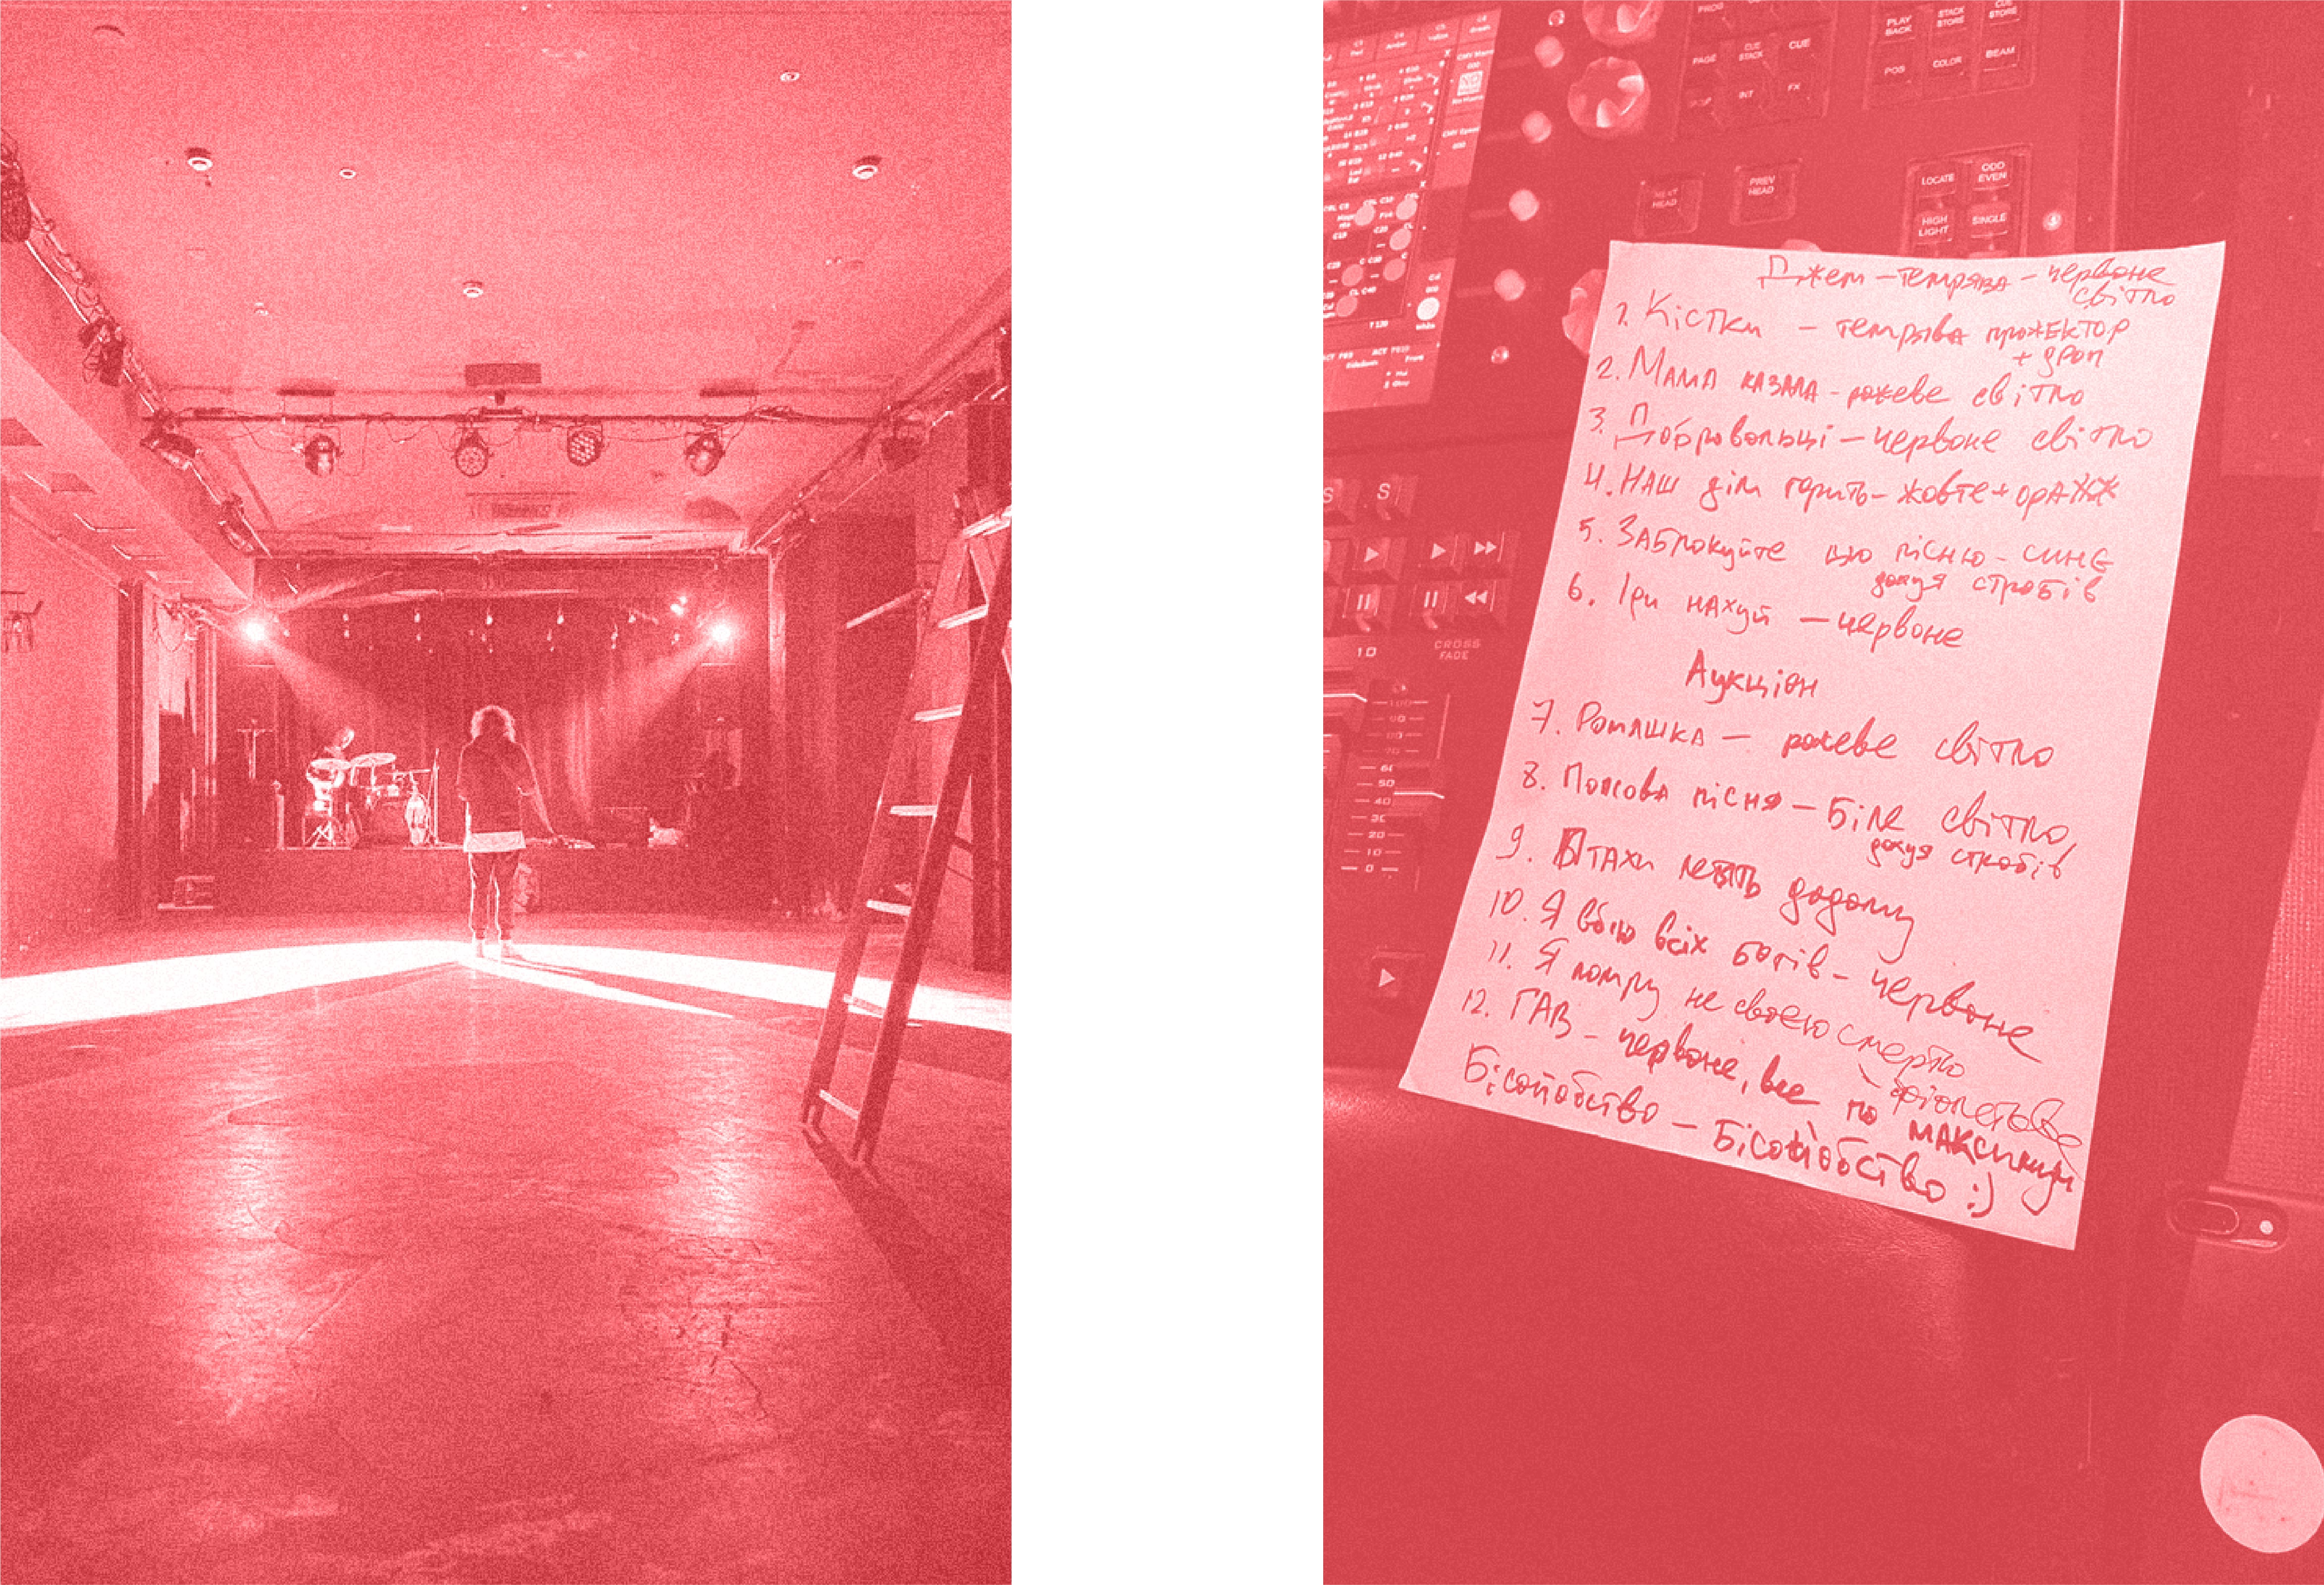 PROG
PLAY BACK
STACK STORE
CUE STORE
PAGE
CUE STACK
CUE
POS
COLOR
BEAM
INT
FX
NEXT HEAD
PREV HEAD
LOCATE
ODD EVEN
HIGH LIGHT
SINGLE
S
CROSS FADE
10
100
90
80
70
60
50
40
30
20
10
0
Джем – темрява – червоне
світло
1. Кістки – темрява прожектор
+ дроп
2. Мама казала – рожеве світло
3. Добровольці – червоне світло
4. Наш дім горить – жовте + оранж
5. Заблокуйте цю пісню – синє
дохуя стробів
6. Іди нахуй – червоне
Аукціон
7. Ромашка – рожеве світло
8. Попсова пісня – Біле світло,
дохуя стробів
9. Птахи летять додому
10. Я вбю всіх богів – червоне
11. Я помру не своєю смертю
– фіолетове
12. ГАВ – червоне, все по максимум
Бісопобство – Бісопобство :)